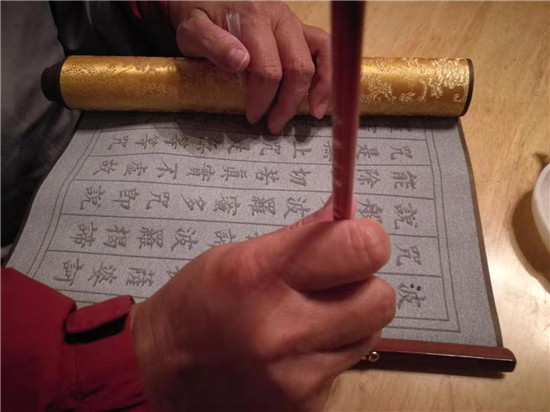 咒是無上咒是無等等咒
能除切苦真實不虛故
說般波羅蜜多咒即說
咒諦波羅揭諦
波薩婆訶